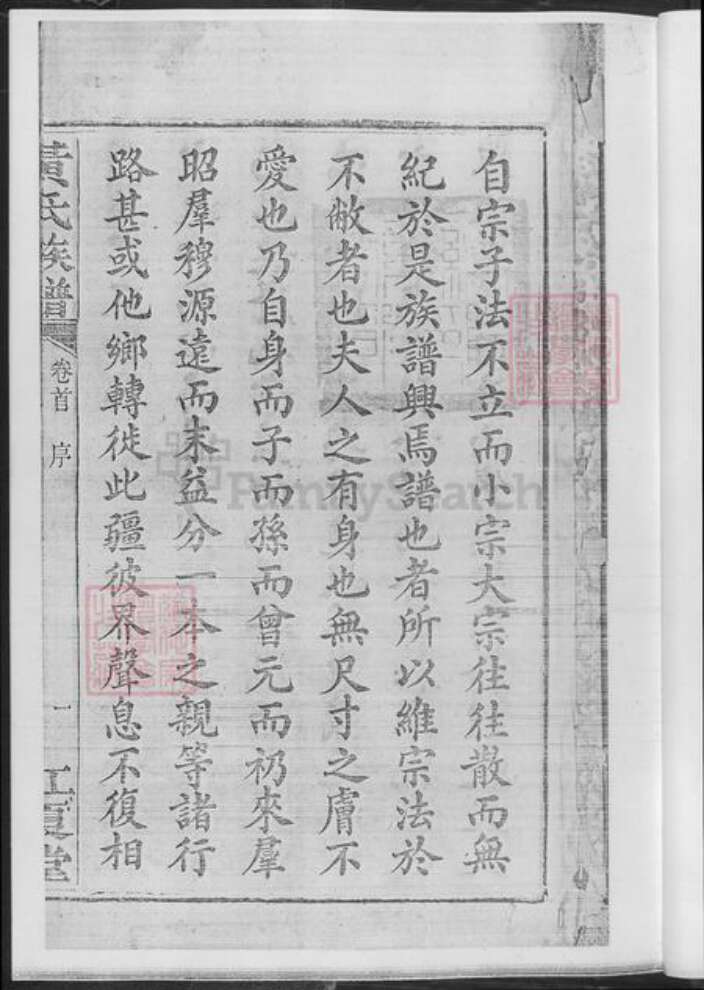 自宗子法不立而小宗大宗往往散而無
紀於是族譜興焉譜也者所以維宗法於
不敝者也夫人之有身也無尺寸之膚不
愛也乃自身而子而孫而曾元而礽來羣
昭羣穆源遠而末益分一本之親等諸行
路甚或他鄉轉徙此疆彼界聲息不復相
黃氏族譜 卷首 序 一 江夏堂
FamilySearch